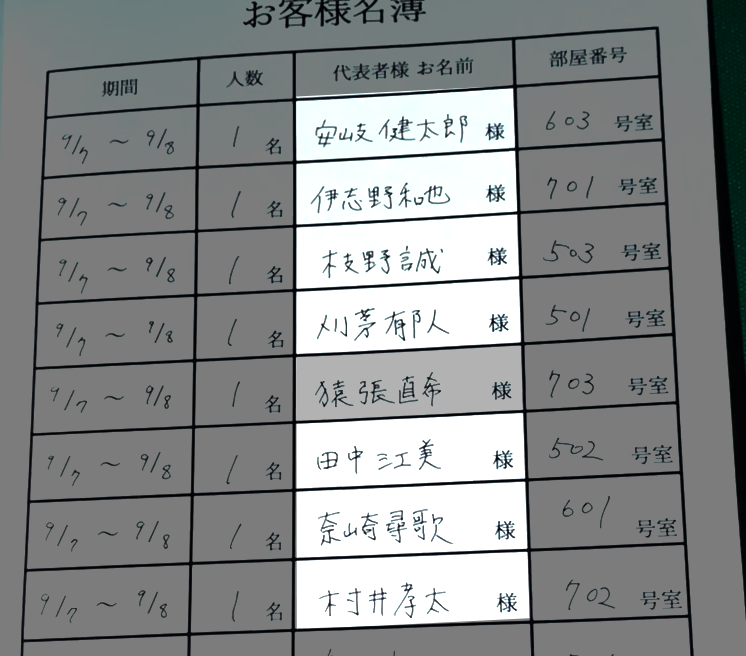 お客様名簿
期間 人数 代表者様 お名前 部屋番号
9/7 ～ 9/8 1名 安岐健太郎 様 603 号室
9/7 ～ 9/8 1名 伊志野和也 様 701 号室
9/7 ～ 9/8 1名 枝野誠 様 503 号室
9/7 ～ 9/8 1名 刈茅有郁人 様 501 号室
9/7 ～ 9/8 1名 猿張直希 様 703 号室
9/7 ～ 9/8 1名 田中三江美 様 502 号室
9/7 ～ 9/8 1名 奈崎尋歌 様 601 号室
9/7 ～ 9/8 1名 村井孝太 様 702 号室